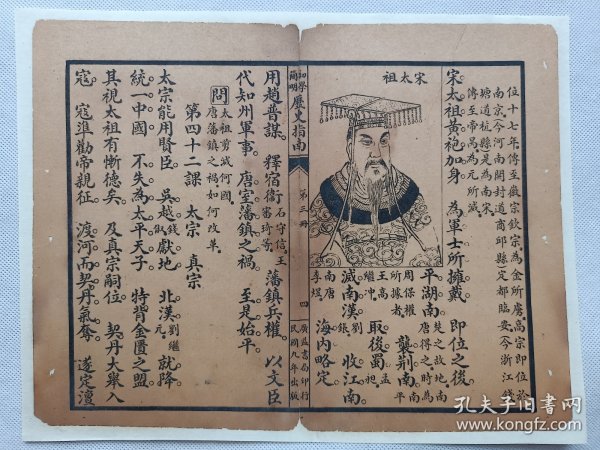 位十七年傳至徽宗欽宗為金所虜高宗即位於
南京今河南開封道商邱縣定都臨安今浙江錢
塘道杭縣是為南宋
傳至帝昺為元所滅
宋太祖黃袍加身 為軍士所擁戴 即位之後
平湖南 楚之故地南唐得之時為周保權所據者 襲荊南 南平王高繼冲
取後蜀 孟昶 滅南漢 劉鋹 收江南 南唐李煜 海內略定
宋太祖
初學簡明歷史指南 第三冊 四 廣益書局印行 民國九年出版
用趙普謀 釋宿衛 石守信王審琦等 藩鎮兵權 以文臣
代知州軍事 唐室藩鎮之禍 至是始平
問 太祖剪滅何國
唐藩鎮之禍如何改革
第四十二課 太宗 真宗
太宗能用賢臣 吳越 錢俶 獻地 北漢 劉繼元 就降
統一中國 不失為太平天子 特背金匱之盟
其視太祖有慚德矣 及真宗嗣位 契丹大舉入
寇 寇準勸帝親征 渡河而契丹氣奪 遂定澶
孔夫子旧書网
www.kongfz.com